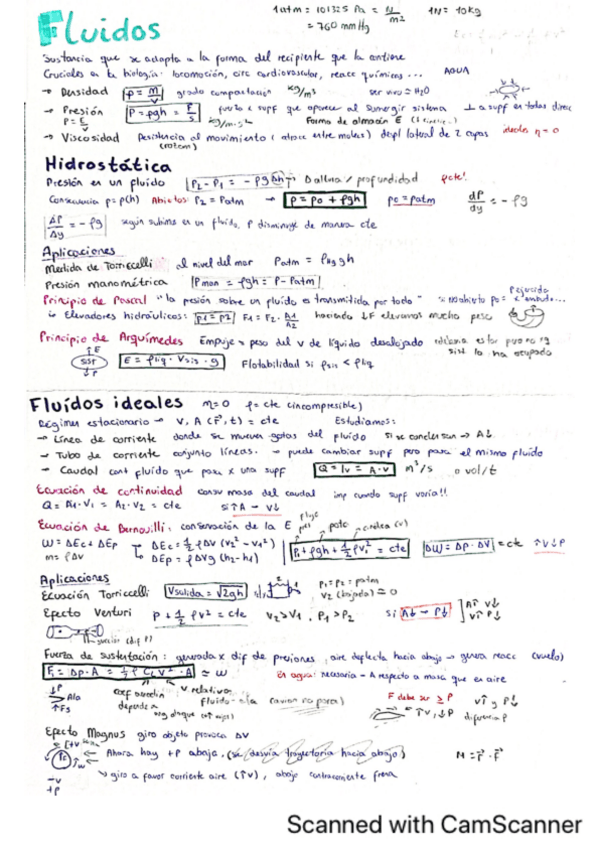 Fluidos
1 atm = 101325 Pa = N/m²
1N = 10kg
= 760 mmHg
Sustancia que se adapta a la forma del recipiente que la contiene
Cruciales en la biología: locomoción, circ cardiovascular, reacc químicas ... AGUA
→ Densidad ρ = m/V grado compactación kg/m³ ser vivo ≈ H2O
→ Presión P = ρgh = F/S fuerza x supf que aparece al sumergir sistema ⊥ a supf en todas direc
P = E/V kg/m·s² Forma de almacén E
→ Viscosidad Resistencia al movimiento ( entre molec) despl lateral de 2 capas ideales η = 0
Hidrostática
Presión en un fluido P2 - P1 = - ρgΔh altura / profundidad
Consecuencia p = p(h) Abiertos P2 = Patm → P = P0 + ρgh P0 = Patm dP/dy = - ρg
ΔP/Δy = - ρg según subimos en un fluido, P disminuye de manera cte
Aplicaciones
Medida de Torricelli al nivel del mar Patm = ρHg g h
Presión manométrica Pman = ρgh = P - Patm
Principio de Pascal "la presión sobre un fluido es transmitida por todo"
Elevadores hidráulicos: P1 = P2 F1 = F2 · A1/A2 haciendo ↓F elevamos mucho peso
Principio de Arquímedes Empuje = peso del v de líquido desalojado
sist E = ρliq · Vsis · g Flotabilidad si ρsis < ρliq sist lo ha ocupado
Fluídos ideales η = 0 ρ = cte (incompresible)
Régimen estacionario → V, A (r, t) = cte Estudiamos:
→ Línea de corriente donde se mueven gotas del fluido si se condensan → A↓
→ Tubo de corriente conjunto líneas. → puede cambiar supf pero pasa el mismo fluido
→ Caudal cant fluido que pasa x una supf Q = Iv = A · v m³/s o vol/t
Ecuación de continuidad consv masa del caudal imp cuando supf varía!!
Q = A1 · V1 = A2 · V2 = cte si ↑A → V↓
Ecuación de Bernouilli: conservación de la E
W = ΔEc + ΔEp ΔEc = 1/2 ρΔV (v2² - v1²) P1 + ρgh + 1/2 ρv1² = cte ΔW = Δp · ΔV = cte ↑V↓P
m = ρΔV ΔEp = ρΔVg (h2 - h1)
Aplicaciones
Ecuación Torricelli Vsalida = √2gh P1 = P2 = patm
V2 (bajada) ≈ 0
Efecto Venturi P + 1/2 ρv² = cte V2 > V1, P1 > P2 si A↓ → P↓ A↑ V↓
V↑ P↓
succión (dif P)
Fuerza de sustentación: generada x dif de presiones, aire deflecta hacia abajo → genera reacc (vuelo)
F = ΔP · A = 1/2 ρ CL V² · A = W En agua: necesaria - A respecto a masa que en aire
↓P Ala ↑Fs v relativa fluido - ala F debe ser ≥ P v↑ y P↓
depende ang ataque ↑V, ↓P diferencia P
Efecto Magnus giro objeto provoca ΔV
Ahora hay +P abajo. (se desvía trayectoria hacia abajo) M = r · F
→ giro a favor corriente aire (↑v), abajo contracorriente frena
-v
+P
Scanned with CamScanner